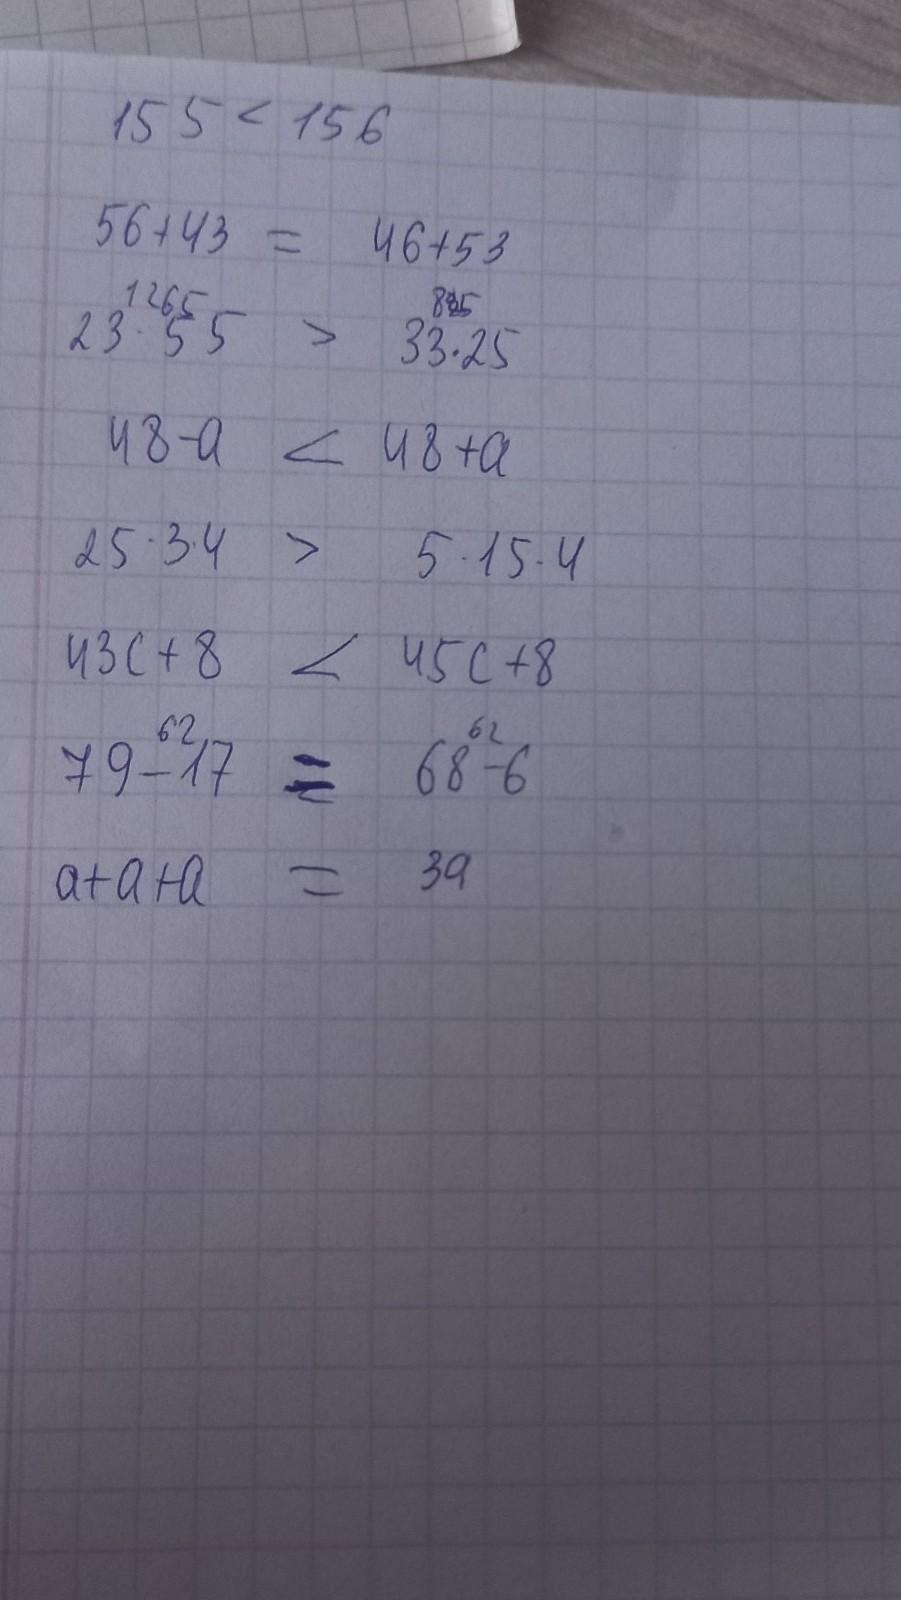 155 < 156
56+43 = 46+53
1265 825
23·55 > 33·25
48-a < 48+a
25·3·4 > 5·15·4
43c+8 < 45c+8
62 62
79-17 = 68-6
a+a+a = 3a